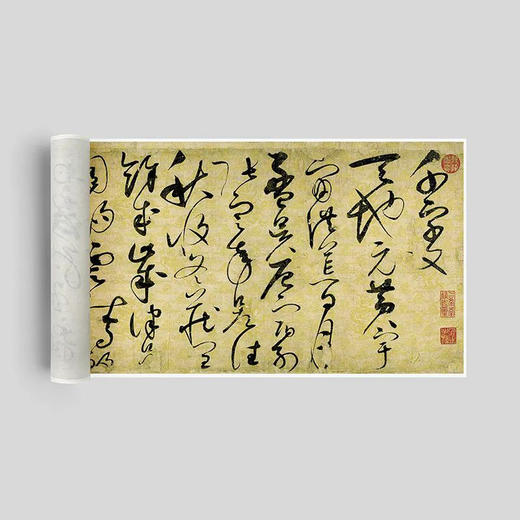 千字文
天地元黃宇
宙洪荒日月
盈昃辰宿列
張寒來暑往
秋收冬藏閏
餘成歲律呂
調陽雲騰致